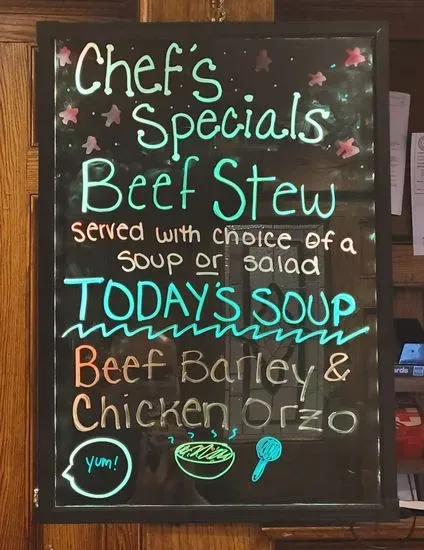 Chef's
Specials
Beef Stew
served with choice of a
soup or salad
TODAY'S SOUP
Beef Barley &
Chicken Orzo
yum!
ards